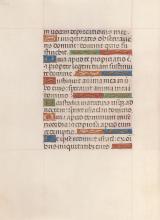 in vocem deprecationis mee
Si iniquitates observaveris
domine: domine quis
stinebit
Quia apud te propitiatio e
propter legem tuam sustinui
te domine
anima mea in
eius: speravit anima mea
in domino
A custodia matutina usque ad
noctem: speret israel in domino
Quia apud dominum miseri
cordia: et copiosa apud eum
redemptio
Et ipse redimet israel: ex om
nibus iniquitatibus eius